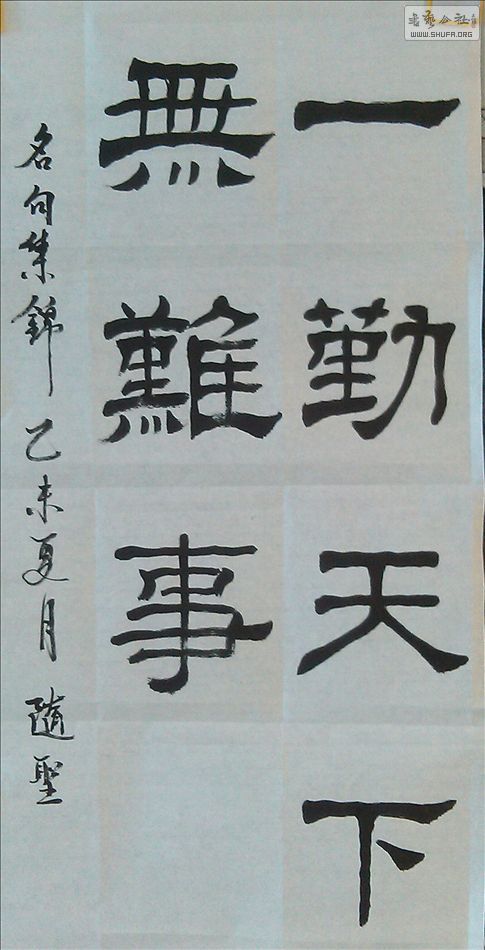 一勤天下
無難事
名句集錦 乙未夏月 隨聖
書藝公社
WWW.SHUFA.ORG